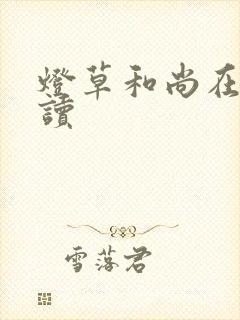 燈草和尚在
讀
雪落君